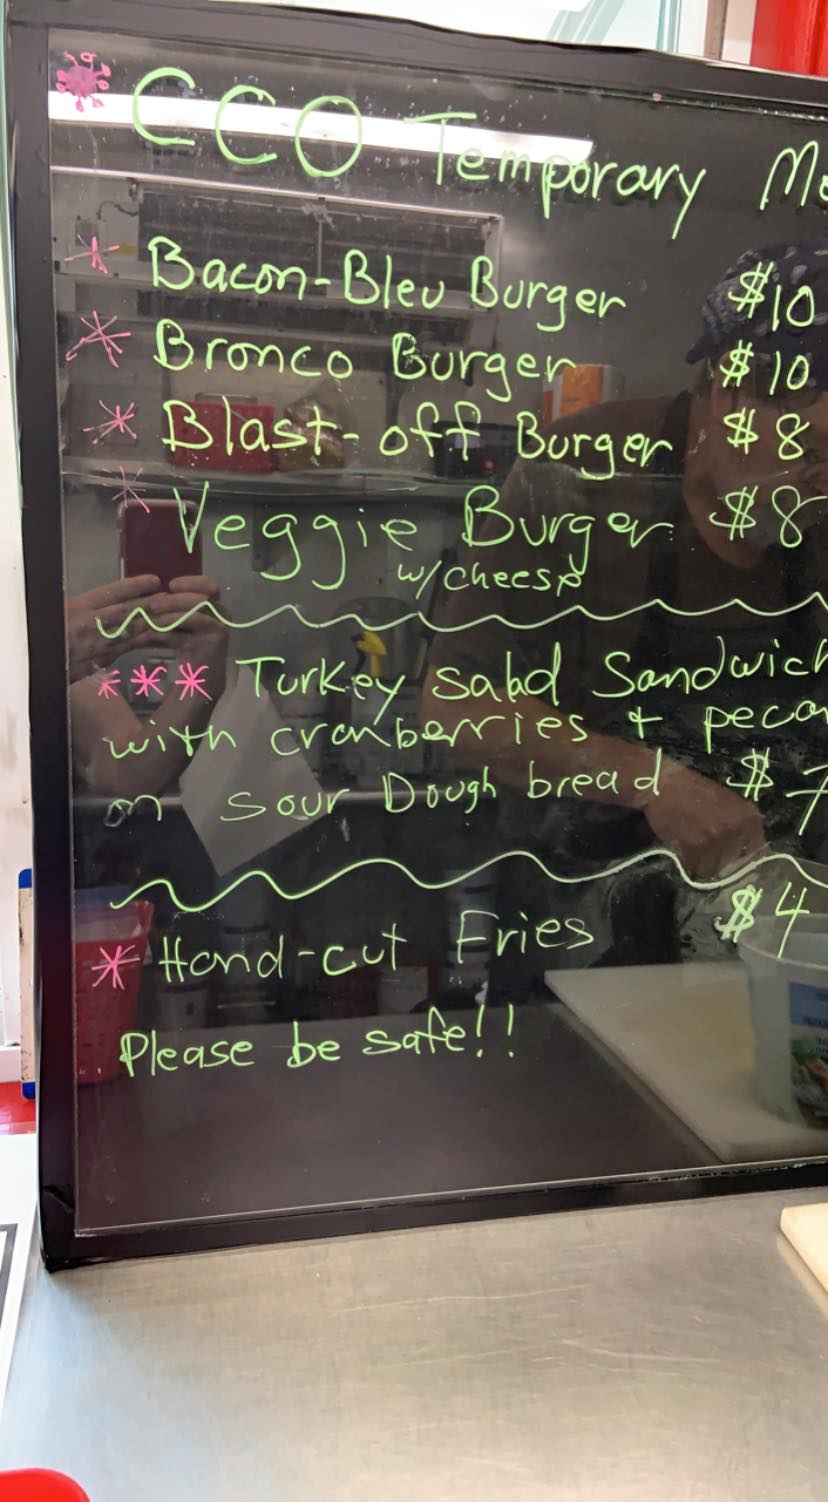 CCO Temporary Me
* Bacon-Bleu Burger $10
* Bronco Burger $10
* Blast-off Burger $8
* Veggie Burger $8
w/cheese
*** Turkey salad Sandwich
with cranberries + peca
on Sour Dough bread $7
* Hand-cut Fries $4
Please be safe!!